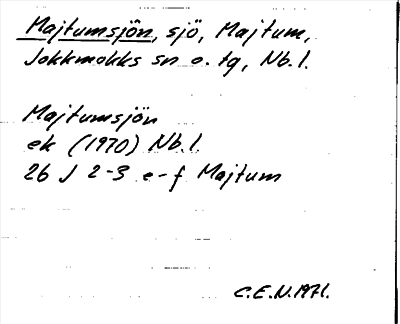 Majtumsjön, sjö, Majtum,
Jokkmokks sn o. tg, Nb.l.
Majtumsjön
ek (1970) Nb.l.
26 J 2-3 e-f Majtum
C.E.N.1971.